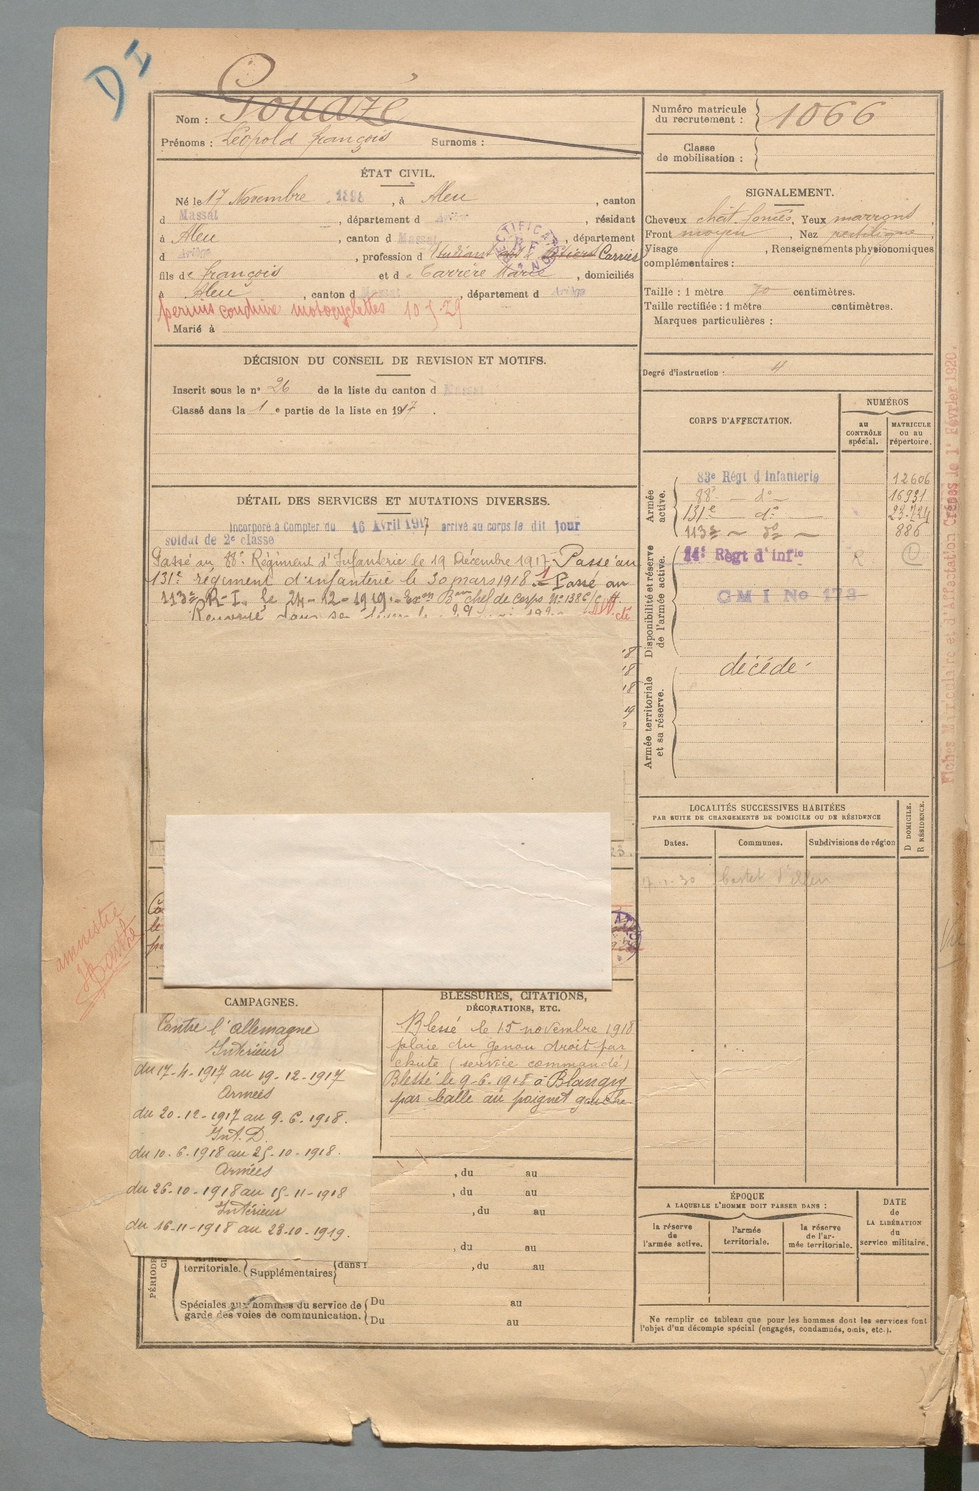 D I
Nom : Gouazé
Prénoms : Léopold François Surnoms :
Numéro matricule du recrutement : 1066
Classe de mobilisation :
ÉTAT CIVIL.
Né le 17 Novembre 1898, à Aleu, canton
d Massat, département d Ariège, résidant
à Aleu, canton d Massat, département
d Ariège, profession d Carrier
fils de François et de Carrère Marie, domiciliés
à Aleu, canton d Massat, département d Ariège
permis conduire motocyclettes
Marié à
SIGNALEMENT.
Cheveux chât. foncés, Yeux marrons,
Front moyen, Nez rectiligne,
Visage , Renseignements physionomiques
complémentaires :
Taille : 1 mètre 70 centimètres.
Taille rectifiée : 1 mètre centimètres.
Marques particulières :
Degré d'instruction : 4
DÉCISION DU CONSEIL DE REVISION ET MOTIFS.
Inscrit sous le n° 26 de la liste du canton d Massat
Classé dans la 1e partie de la liste en 1917.
DÉTAIL DES SERVICES ET MUTATIONS DIVERSES.
Incorporé à Compter du 16 Avril 1917 arrivé au corps le dit jour
soldat de 2e classe
Passé au 88e Régiment d'Infanterie le 19 Décembre 1917. Passé au
131e régiment d'infanterie le 30 mars 1918. Passé au
113e R.I. le 24-12-1919. chef de corps N° 1386
CORPS D'AFFECTATION.
NUMÉROS
au CONTRÔLE spécial.
MATRICULE ou au répertoire.
Armée active.
83e Régt d'infanterie 12606
88e — do — 16931
131e — do — 23.724
113e — do — 886
Disponibilité et réserve de l'armée active.
14e Régt d'infie R
CMI No 178
Armée territoriale et sa réserve.
décédé
Fiches Matriculaire et d'Affectation Créées le 1er Février 1920.
LOCALITÉS SUCCESSIVES HABITÉES
PAR SUITE DE CHANGEMENTS DE DOMICILE OU DE RÉSIDENCE
Dates. Communes. Subdivisions de région
D DOMICILE. R RÉSIDENCE.
amnistié
CAMPAGNES.
Contre l'Allemagne
Intérieur
du 17-4-1917 au 19-12-1917
Armées
du 20-12-1917 au 9-6-1918.
Int. D.
du 10-6-1918 au 25-10-1918.
Armées
du 26-10-1918 au 15-11-1918
Intérieur
du 16-11-1918 au 23-10-1919.
BLESSURES, CITATIONS,
DÉCORATIONS, ETC.
Blessé le 15 novembre 1918
plaie du genou droit par
chute (service commandé)
Blessé le 9-6-1918 à Blangy
par balle au poignet gauche
, du au
, du au
, du au
, du au
territoriale. Supplémentaires dans l , du au
Spéciales aux hommes du service de garde des voies de communication.
Du au
Du au
ÉPOQUE
A LAQUELLE L'HOMME DOIT PASSER DANS :
la réserve de l'armée active.
l'armée territoriale.
la réserve de l'armée territoriale.
DATE de LA LIBÉRATION du service militaire.
Ne remplir ce tableau que pour les hommes dont les services font
l'objet d'un décompte spécial (engagés, condamnés, omis, etc.).